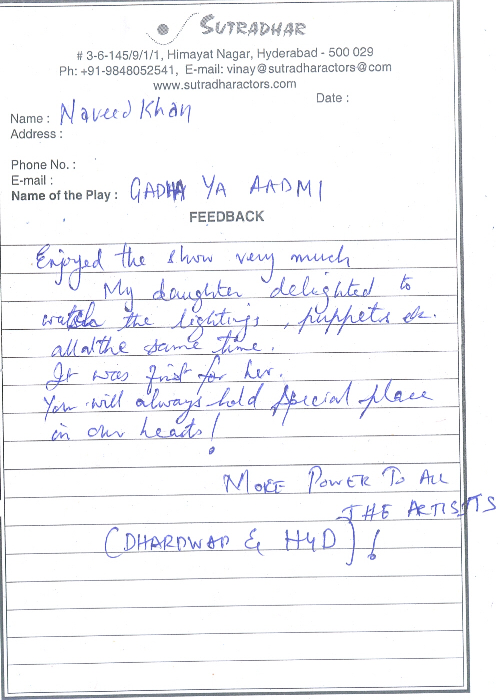 SUTRADHAR
# 3-6-145/9/1/1, Himayat Nagar, Hyderabad - 500 029
Ph: +91-9848052541, E-mail: vinay@sutradharactors@com
www.sutradharactors.com
Date :
Name : Naveed Khan
Address :
Phone No. :
E-mail :
Name of the Play : GADHA YA AADMI
FEEDBACK
Enjoyed the show very much
My daughter delighted to
watch the lightings, puppets etc.
all at the same time.
It was first for her.
You will always hold special place
in our hearts!
MORE POWER TO ALL
THE ARTISTS
(DHARDWAD & HYD) !